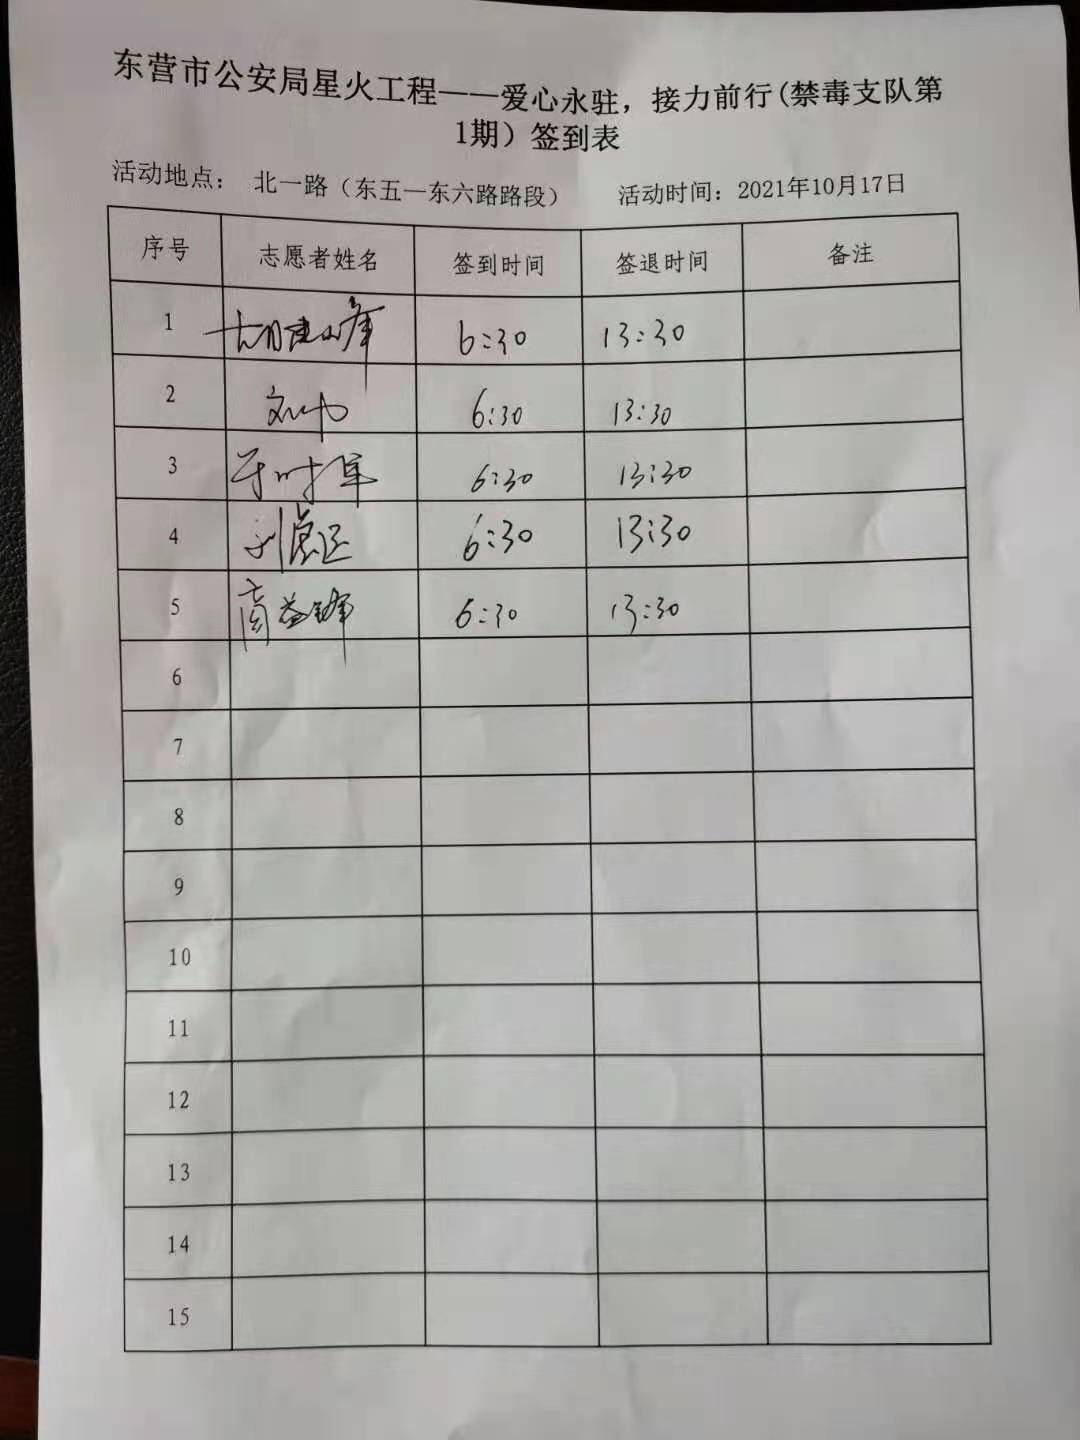 东营市公安局星火工程——爱心永驻，接力前行(禁毒支队第
1期）签到表
活动地点： 北一路（东五—东六路路段） 活动时间：2021年10月17日
序号 志愿者姓名 签到时间 签退时间 备注
1 胡建峰 6:30 13:30
2 6:30 13:30
3 6:30 13:30
4 6:30 13:30
5 商益锋 6:30 13:30
6
7
8
9
10
11
12
13
14
15